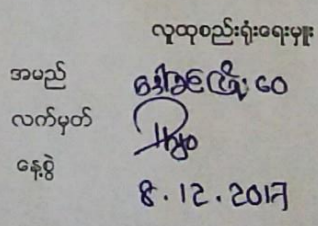 လူထုစည်းရုံးရေးမှူး
အမည် ဒေါ်ခင်ဖြိုးဝေ
လက်မှတ်
နေ့စွဲ 8.12.2017